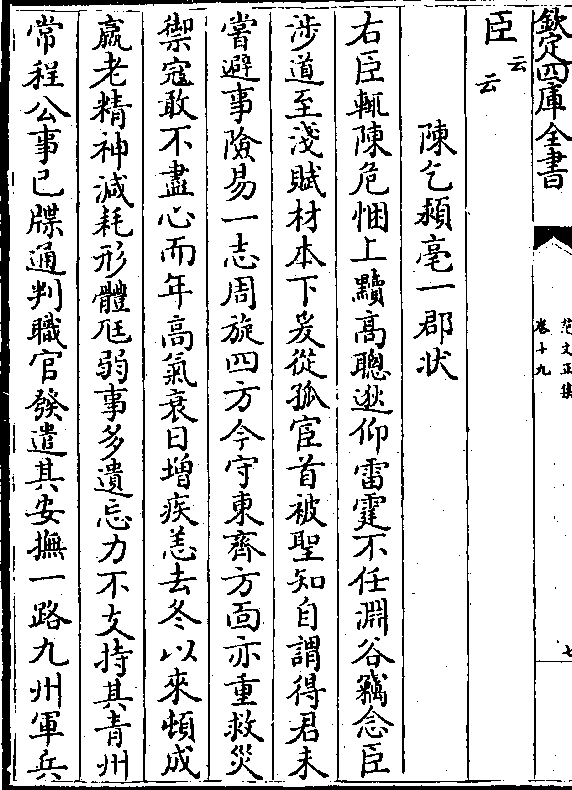 欽定四庫全書
范文正集
卷十九
七
臣云云
陳乞潁亳一郡狀
右臣輒陳危悃上黷高聰逖仰雷霆不任淵谷竊念臣
涉道至淺賦材本下爰從孤宦首被聖知自謂得君未
嘗避事險易一志周旋四方今守東齊方面亦重救災
禦寇敢不盡心而年高氣衰日增疾恙去冬以來頓成
羸老精神減耗形體尫弱事多遺忘力不支持其青州
常程公事已牒通判職官發遣其安撫一路九州軍兵